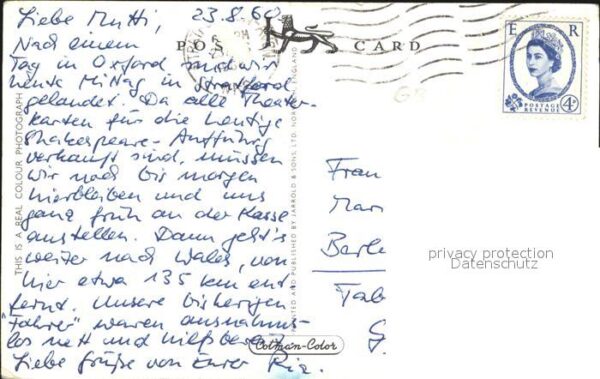 Liebe Mutti, 23.8.60
POST CARD
Nach einem
Tag in Oxford sind wir
heute Mittag in Stratford
gelandet. Da alle Theater-
karten für die heutige
Shakespeare-Aufführg
verkauft sind, müssen
wir noch bis morgen
hierbleiben und uns
ganz früh an der Kasse
anstellen. Dann geht's
weiter nach Wales, von
hier etwa 135 km ent
fernt. Unsere bisherigen
"Fahrer" waren ausnahms-
los nett und hilfsbereit
Liebe Grüße von Eurer
E R
POSTAGE
REVENUE
4D
Frau
Berl
privacy protection
Datenschutz
THIS IS A REAL COLOUR PHOTOGRAPH
PRINTED AND PUBLISHED BY JARROLD & SONS LTD. NORWICH, ENGLAND
Cotman-Color